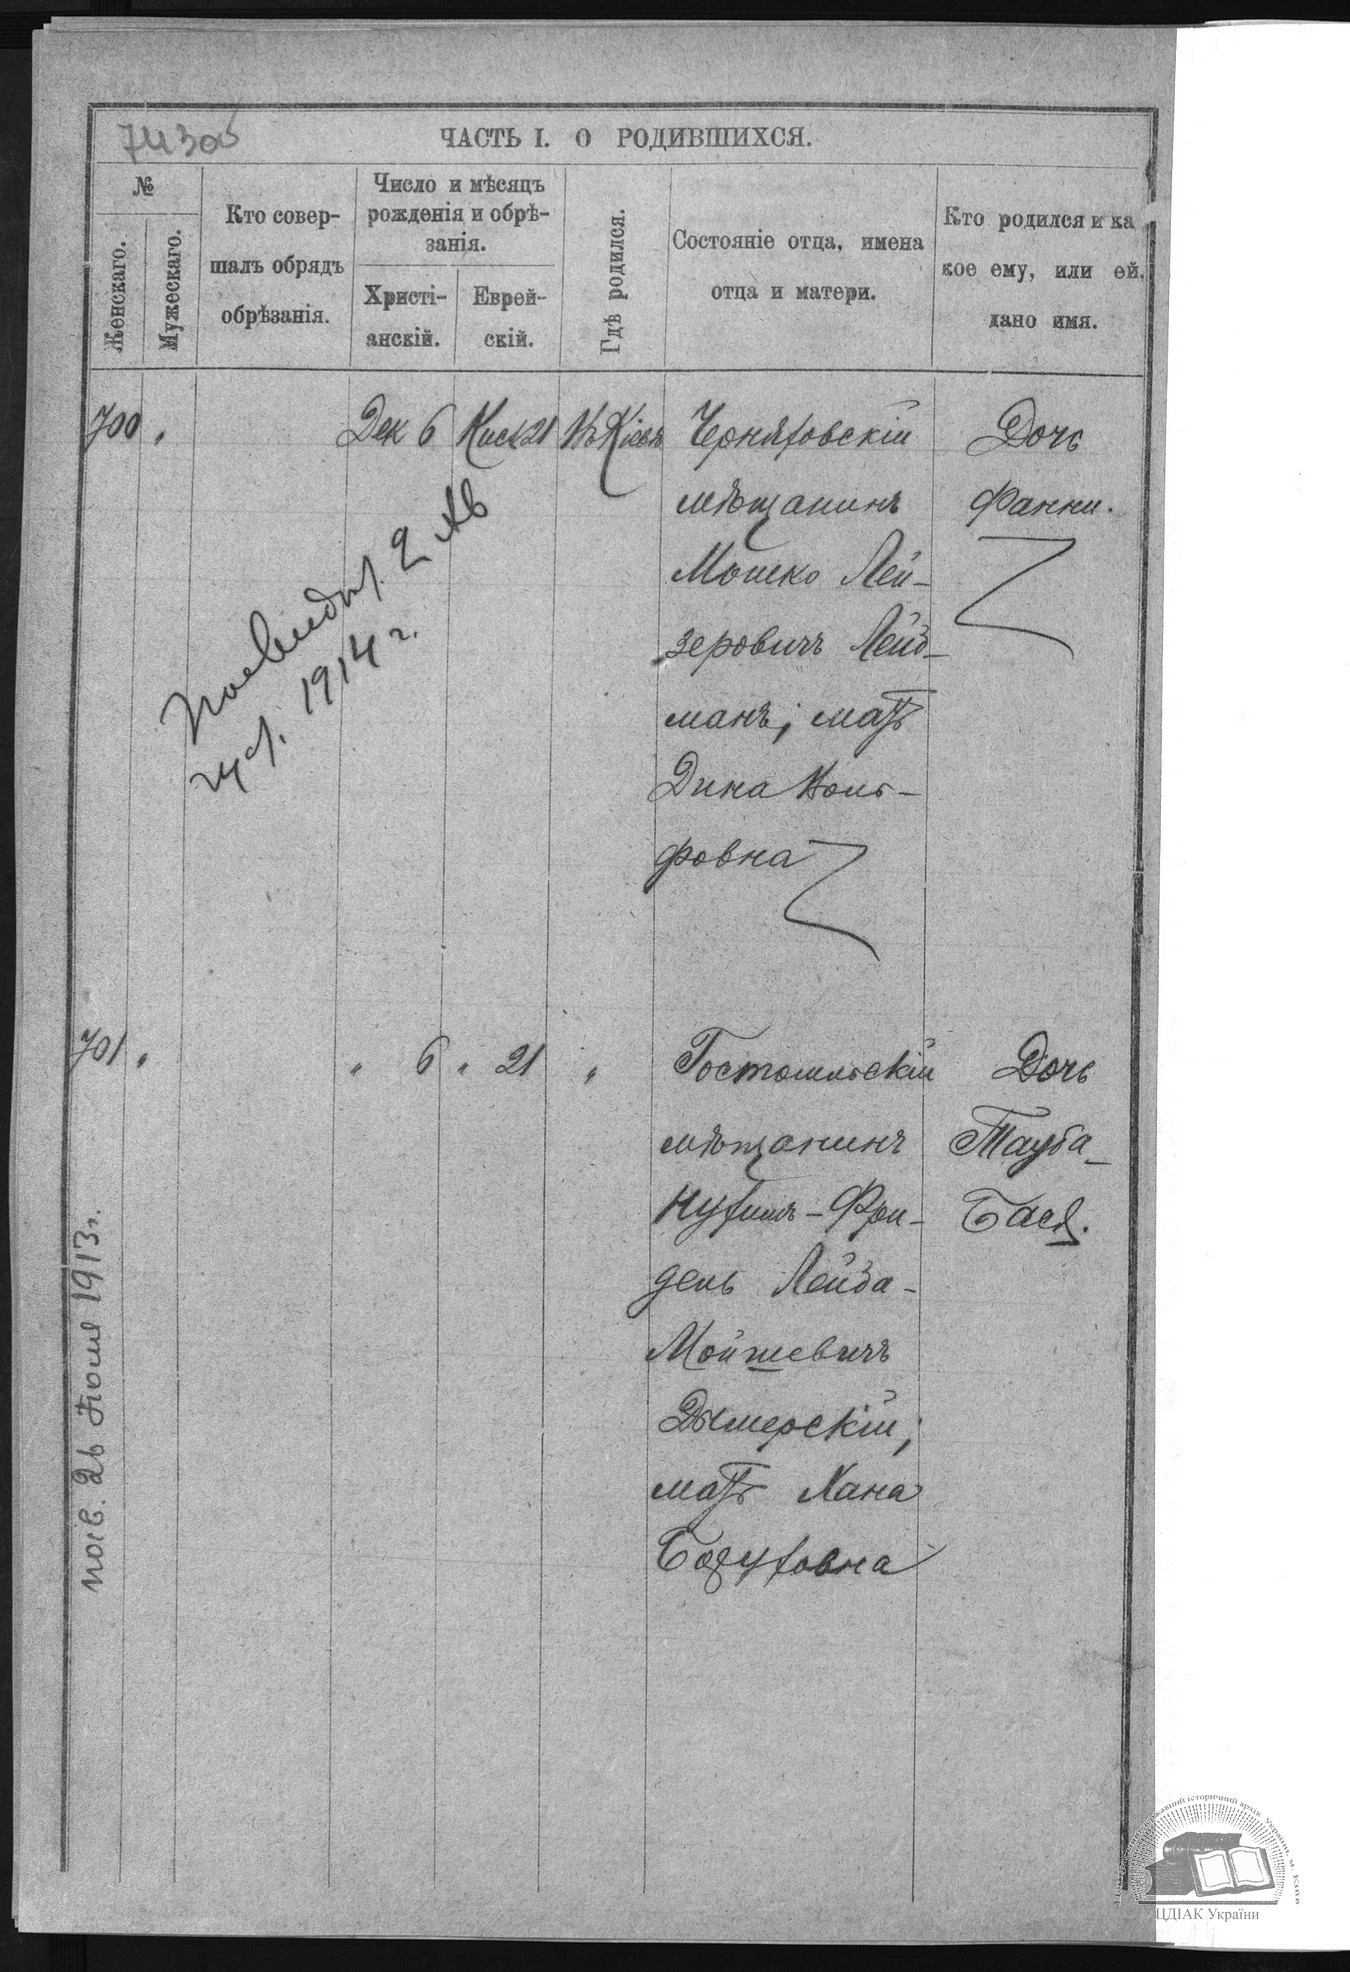 74300
ЧАСТЬ I. О РОДИВШИХСЯ.
№
Женскаго.
Мужескаго.
Кто совер-
шалъ обрядъ
обрѣзанія.
Число и мѣсяцъ
рожденія и обрѣ-
занія.
Христі-
анскій.
Еврей-
скій.
Гдѣ родился.
Состояніе отца, имена
отца и матери.
Кто родился и ка
кое ему, или ей.
дано имя.
700 „ Дек 6 Кисл 21 Въ Кіевѣ
Черняховскій
мѣщанинъ
Мошко Лей-
зеровичъ Лейд-
манъ; мать
Дина Воль-
фовна
Дочь
Фанни.
1914 г.
701 „ „ 6 „ 21 „
Гостомльскій
мѣщанинъ
Нухимъ-Фри-
дель Лейба-
Мойшевичъ
Дымерскій;
мать Хана
Дочь
Тауба-
Бася.
1913 г.
ЦДІАК України